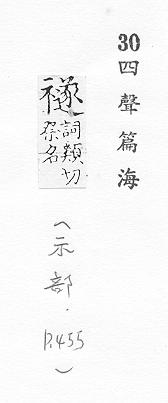 30四聲篇海
禭詞類切
祭名
（示部．P.455）